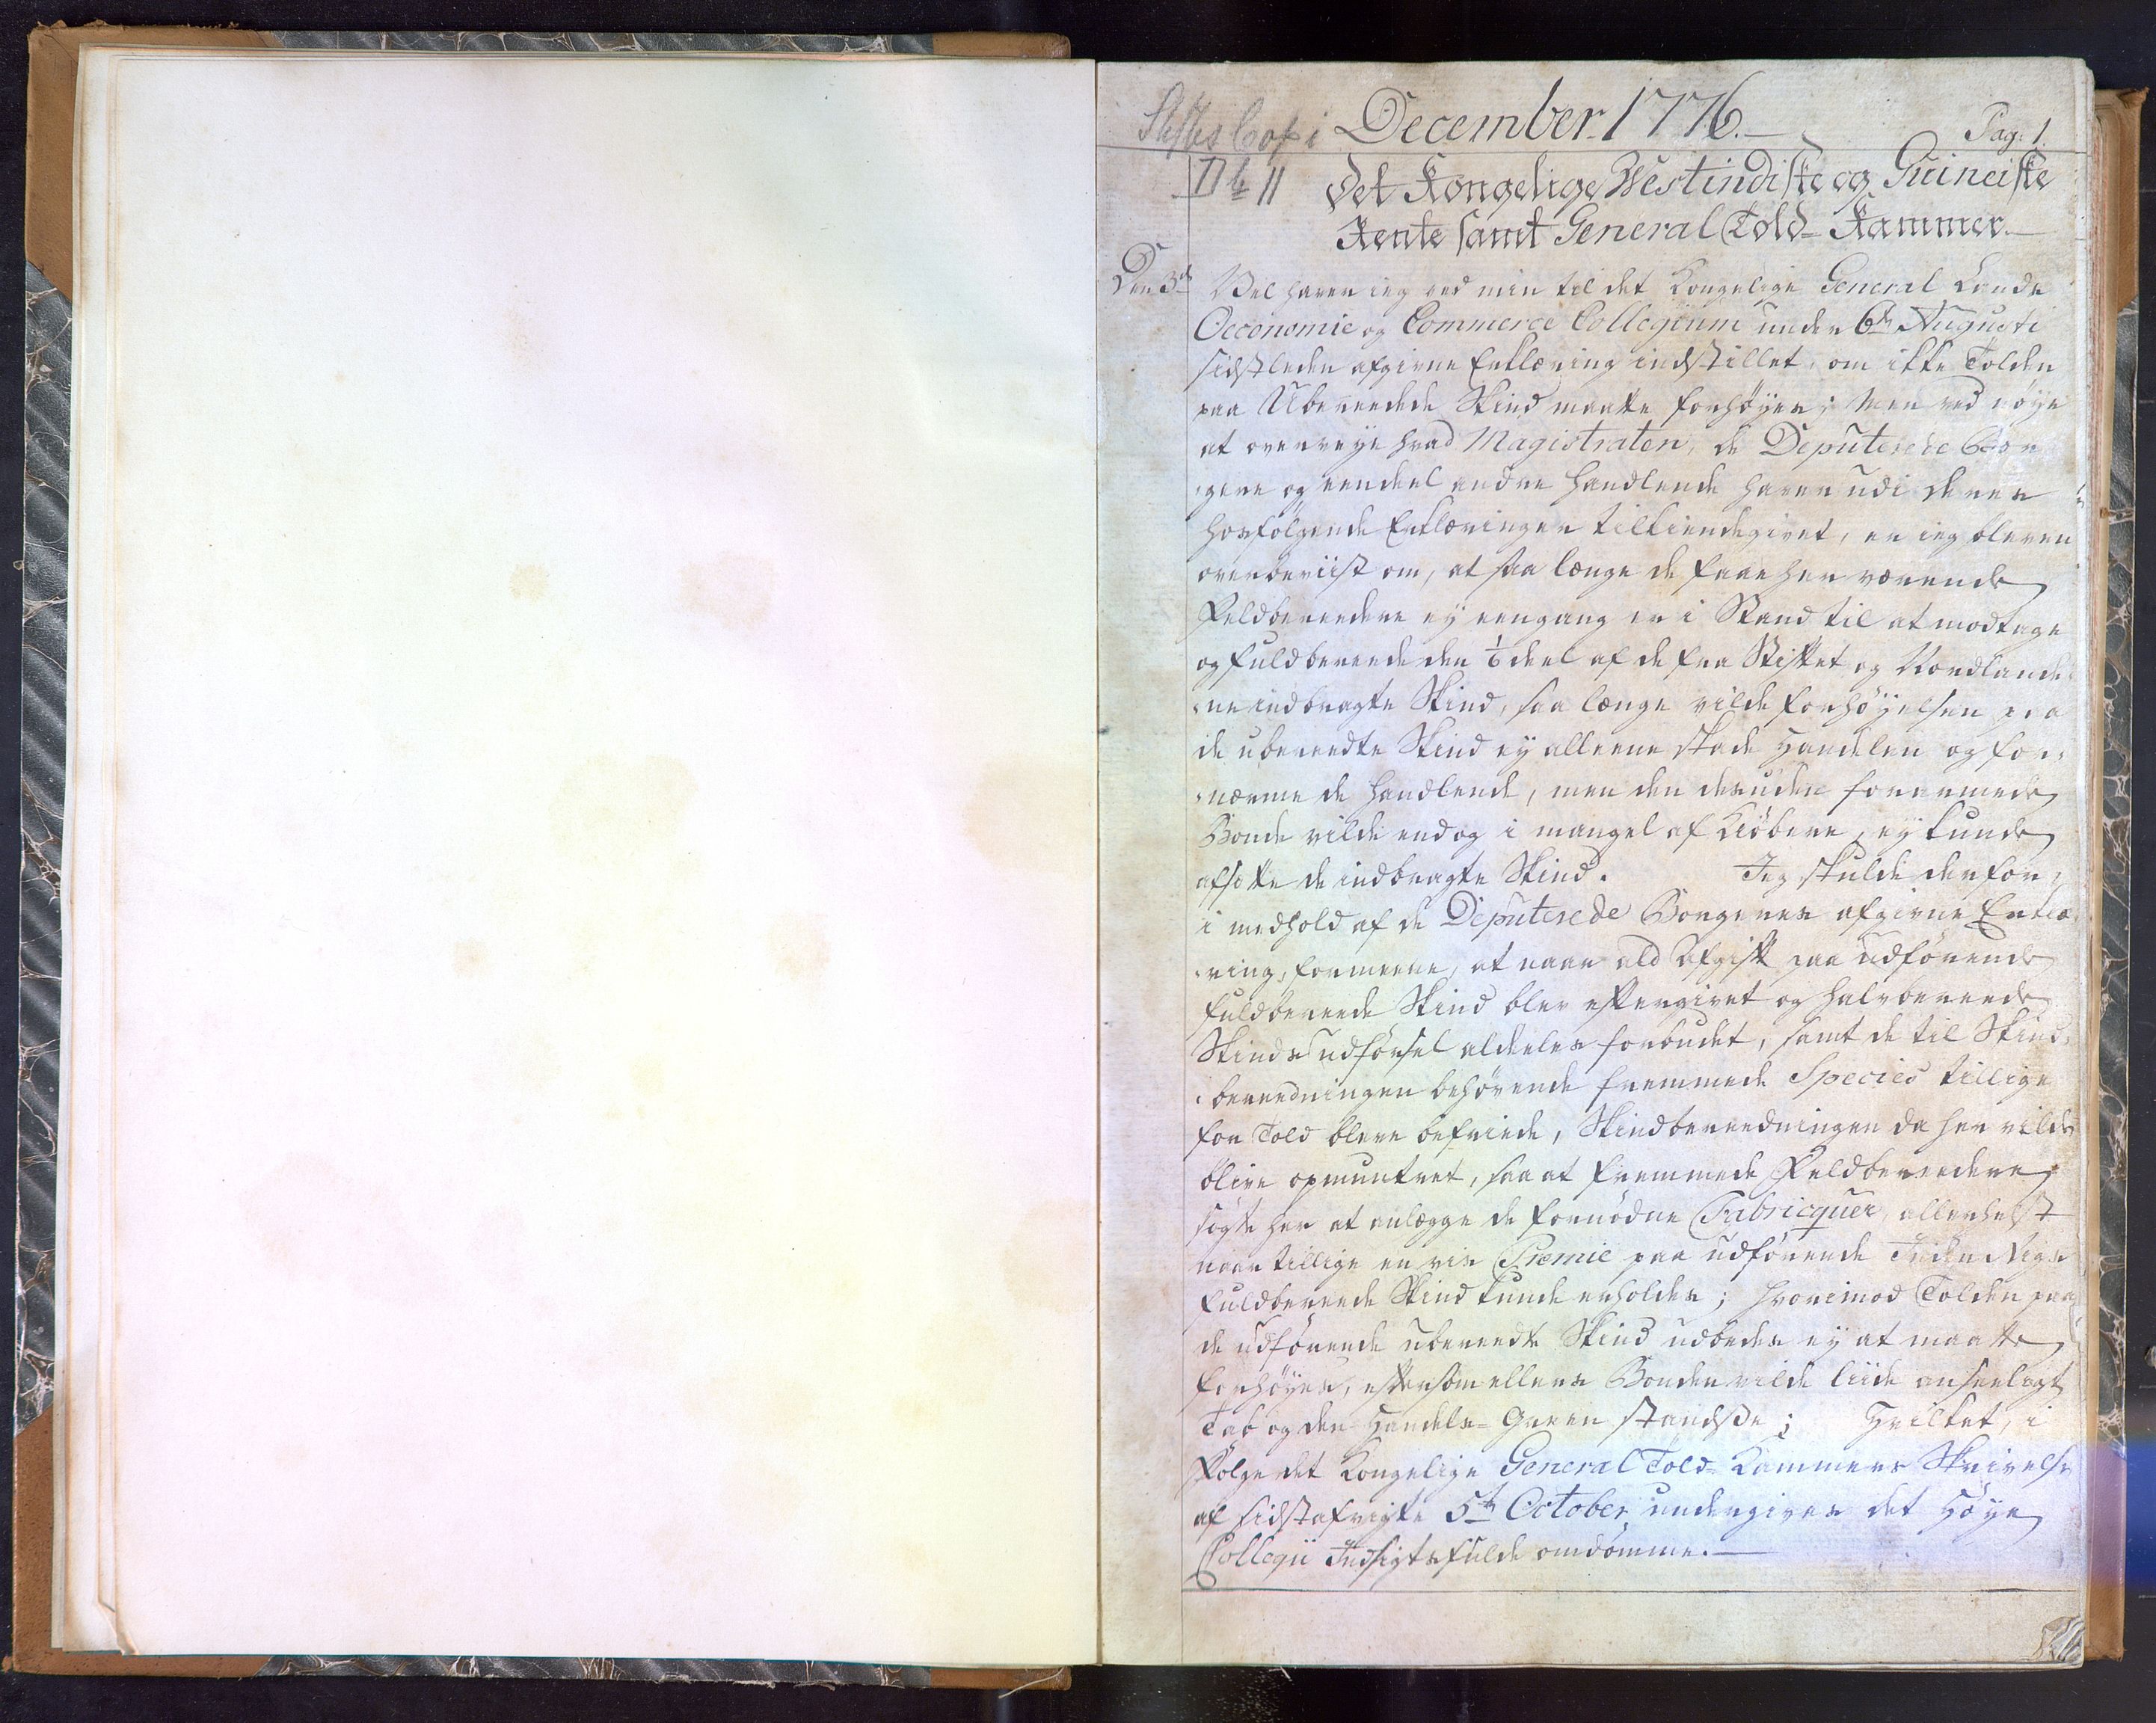 Stifts Copi December 1776.
Pag: 1.
Det Kongelige Westindiske og Guineiske
Rente samt General Told-Kammer.
Den 3de Vel haver ieg ved min til det Kongelige General Lande
Oeconomie og Commerce Collegium under 6te Augusti
sidstleden afgivne Erklæring indstillet, om ikke Tolden
paa Ubereedede Skind maatte forhøyes; Men ved nøye
at overveye hvad Magistraten, de Deputerede Bor-
gere og eendeel andre Handlende haver udi deres
hosfølgende Erklæringer tilkiendegivet, er ieg bleven
overbeviist om, at saa længe de faae her værende
Feldberedere ey eengang er i Stand til at modtage
og fuldbereede den 1/6 deel af de fra Stiftet og Nordlande-
ne indbragte Skind, saa længe vilde forhøyelsen paa
de ubereedte Skind ey alleene skade Handelen og for-
nærme de Handlende, men den desuden forarmede
Bonde vilde endog i mangel af Kiøbere, ey kunde
afsette de indbragte Skind. Jeg skulde derfor,
i medhold af de Deputerede Borgeres afgivne Erklæ-
ring, formeene, at naar ald Afgift paa udførende
fuldbereede Skind blev eftergivet og halvbereede
Skinds udførsel aldeeles forbudet, samt de til Skind-
bereedningen behøvende fremmede Species tillige
for Told bleve befriede, Skindbereedningen da her vilde
blive opmuntret, saa at fremmede Feldbereedere
søgte her at anlægge de fornødne Fabricquer, allerhelst
naar tillige en vis Premie paa udførende Inden Rigs
fuldbereede Skind kunde erholdes; hvorimod Tolden paa
de udførende ubereedte Skind udbedes ey at maatte
forhøyes, eftersom ellers Bonden vilde liide anseeligt
Tab og den Handels-Green standse; Hvilket, i
Følge det Kongelige General Told-Kammers Skrivelse
af sidstafvigte 5te October, undergives det Høye
Collegii Indsigtsfulde omdømme.